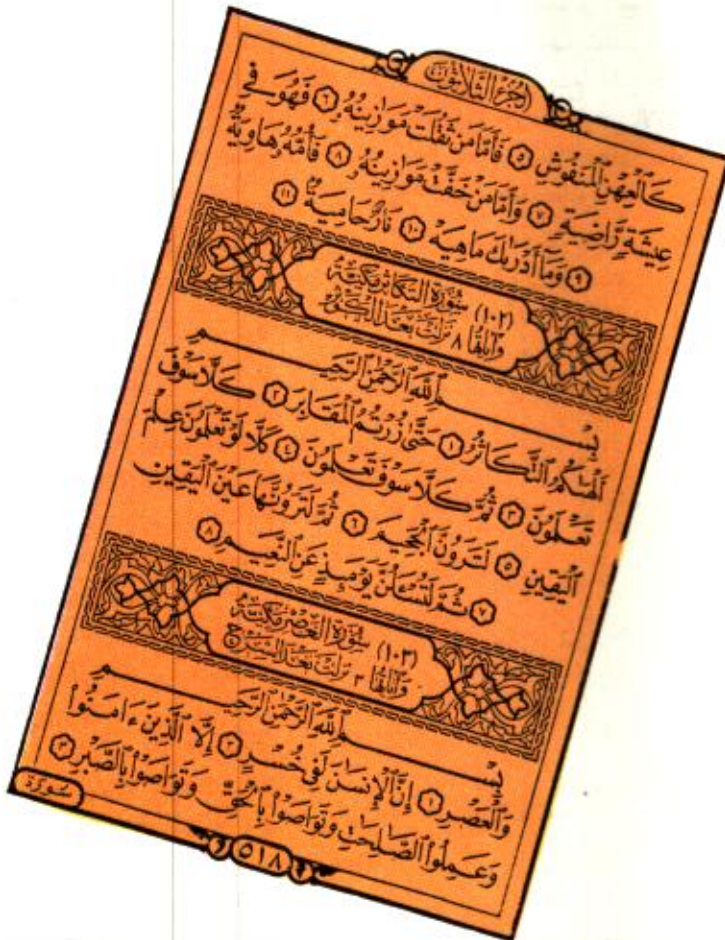 الجزء الثلاثون
كَٱلْعِهْنِ ٱلْمَنفُوشِ ٥ فَأَمَّا مَن ثَقُلَتْ مَوَٰزِينُهُۥ ٦ فَهُوَ فِى
عِيشَةٍ رَّاضِيَةٍ ٧ وَأَمَّا مَنْ خَفَّتْ مَوَٰزِينُهُۥ ٨ فَأُمُّهُۥ هَاوِيَةٌ
٩ وَمَآ أَدْرَىٰكَ مَا هِيَهْ ١٠ نَارٌ حَامِيَةٌۢ ١١
(١٠٢) سورة التكاثر مكية
وآياتها ٨ نزلت بعد الكوثر
بِسْمِ ٱللَّهِ ٱلرَّحْمَٰنِ ٱلرَّحِيمِ
أَلْهَىٰكُمُ ٱلتَّكَاثُرُ ١ حَتَّىٰ زُرْتُمُ ٱلْمَقَابِرَ ٢ كَلَّا سَوْفَ
تَعْلَمُونَ ٣ ثُمَّ كَلَّا سَوْفَ تَعْلَمُونَ ٤ كَلَّا لَوْ تَعْلَمُونَ عِلْمَ
ٱلْيَقِينِ ٥ لَتَرَوُنَّ ٱلْجَحِيمَ ٦ ثُمَّ لَتَرَوُنَّهَا عَيْنَ ٱلْيَقِينِ
٧ ثُمَّ لَتُسْـَٔلُنَّ يَوْمَئِذٍ عَنِ ٱلنَّعِيمِ ٨
(١٠٣) سورة العصر مكية
وآياتها ٣ نزلت بعد الشرح
بِسْمِ ٱللَّهِ ٱلرَّحْمَٰنِ ٱلرَّحِيمِ
وَٱلْعَصْرِ ١ إِنَّ ٱلْإِنسَٰنَ لَفِى خُسْرٍ ٢ إِلَّا ٱلَّذِينَ ءَامَنُوا۟
وَعَمِلُوا۟ ٱلصَّٰلِحَٰتِ وَتَوَاصَوْا۟ بِٱلْحَقِّ وَتَوَاصَوْا۟ بِٱلصَّبْرِ ٣
سورة
٥١٨